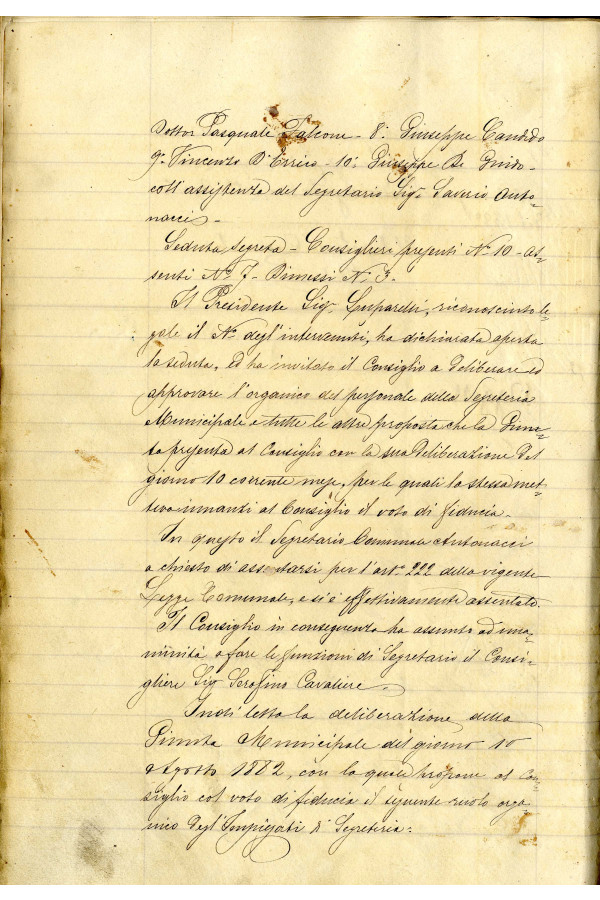 Dottor Pasquale Falcone - 8.° Giuseppe Candido
9.° Vincenzo D'Errico - 10.° Giuseppe De Guido -
coll'assistenza del Segretario Sig.r Saverio Anto-
nacci -
Seduta segreta - Consiglieri presenti N.° 10 - As-
senti N.° 7 - Dimessi N.° 3 -
Il Presidente Sig.r riconosciuto le-
gale il N.° degl'intervenuti, ha dichiarata aperta
la seduta, ed ha invitato il Consiglio a deliberare ed
approvare l'organico del personale della Segreteria
Municipale e tutte le altre proposte che la Giun-
ta presenta al Consiglio con la sua deliberazione del
giorno 10 corrente mese, per le quali la stessa met-
teva innanzi al Consiglio il voto di fiducia.
In questo il Segretario Comunale Antonacci
a chiesto di assentarsi per l'art.° 222 della vigente
Legge Comunale, e si è effettivamente assentato.
Il Consiglio in conseguenza ha assunto ad una-
nimità a fare le funzioni di Segretario il Consi-
gliere Sig.r Serafino Cavaliere.
Indi letta la deliberazione della
Giunta Municipale del giorno 10
Agosto 1882, con la quale propone al Con-
siglio col voto di fiducia il seguente ruolo orga-
nico degl'Impiegati di Segreteria: